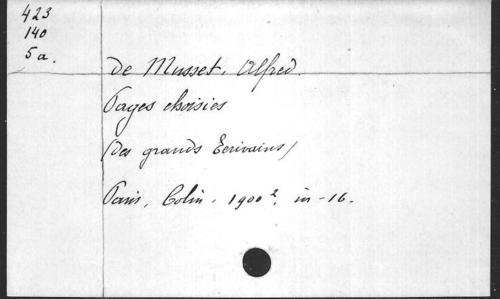 423
140
5a.
De Musset, Alfred.
Pages choisies
(des grands Ecrivains)
Paris, Colin, 1900², in-16.